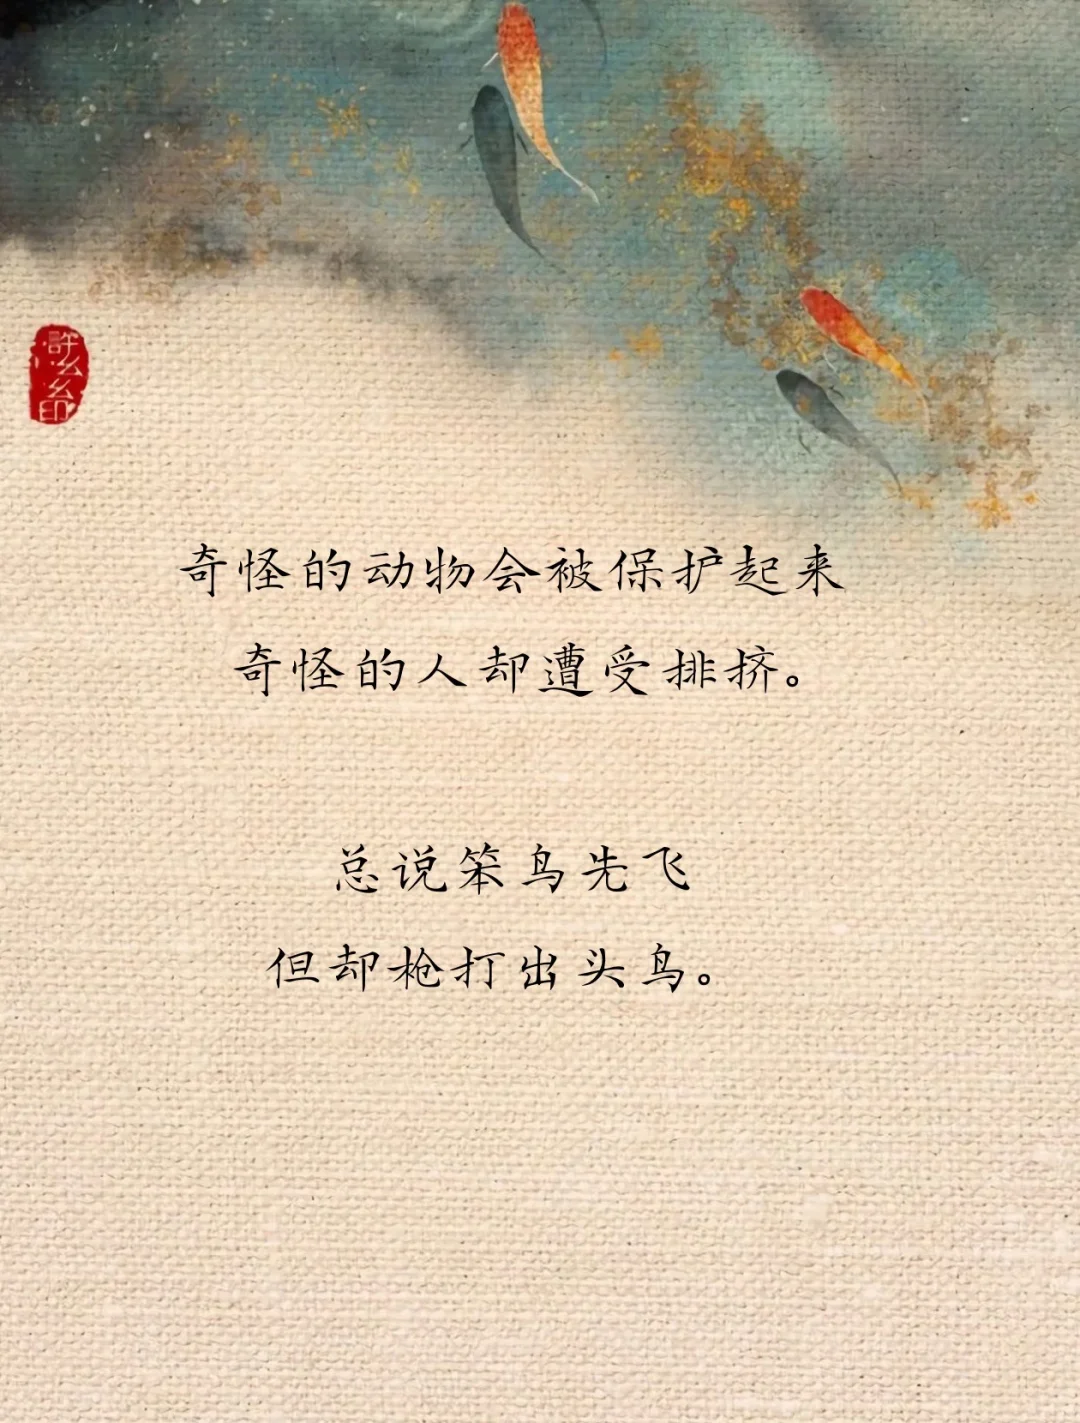 許么么印
奇怪的动物会被保护起来
奇怪的人却遭受排挤。
总说笨鸟先飞
但却枪打出头鸟。